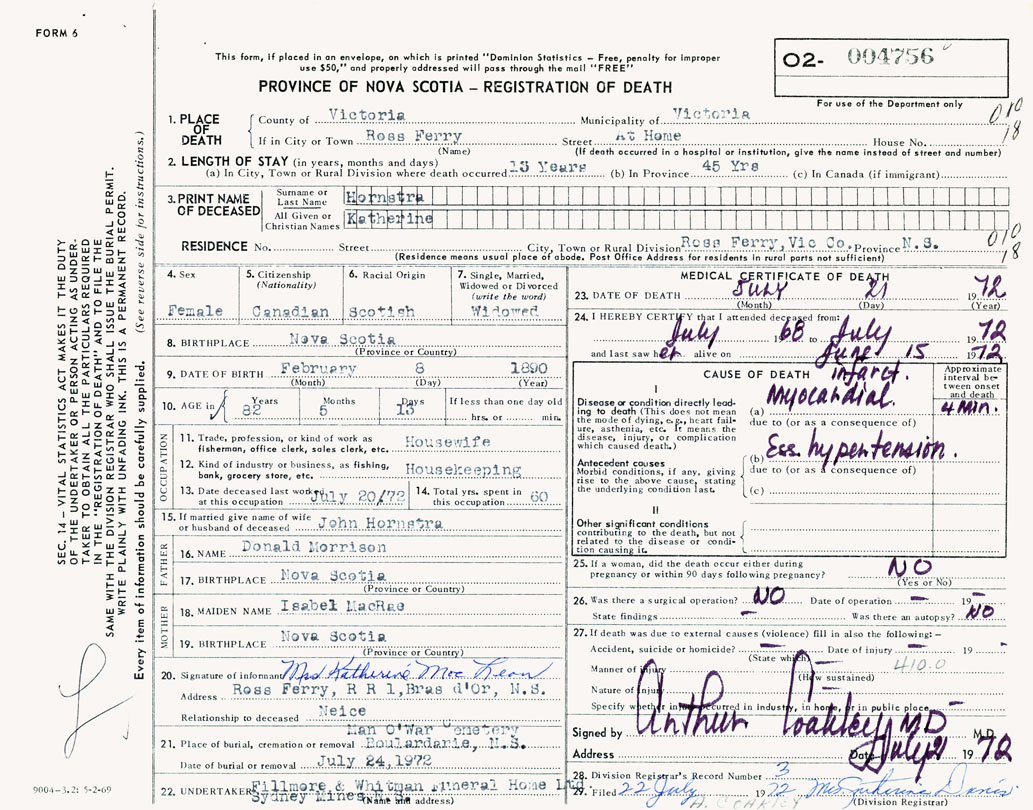 FORM 6
This form, if placed in an envelope, on which is printed "Dominion Statistics – Free, penalty for improper
use $50," and properly addressed will pass through the mail "FREE"
PROVINCE OF NOVA SCOTIA – REGISTRATION OF DEATH
O2- 004756
For use of the Department only
1. PLACE OF DEATH
County of Victoria Municipality of Victoria
010
18
If in City or Town Ross Ferry Street At Home House No.
(Name) (If death occurred in a hospital or institution, give the name instead of street and number)
2. LENGTH OF STAY (in years, months and days)
(a) In City, Town or Rural Division where death occurred 13 Years (b) In Province 45 Yrs (c) In Canada (if immigrant)
3. PRINT NAME OF DECEASED
Surname or Last Name Hornstra
All Given or Christian Names Katherine
RESIDENCE No. Street City, Town or Rural Division Ross Ferry, Vic Co. Province N.S.
010
18
(Residence means usual place of abode. Post Office Address for residents in rural parts not sufficient)
4. Sex
Female
5. Citizenship
(Nationality)
Canadian
6. Racial Origin
Scotish
7. Single, Married,
Widowed or Divorced
(write the word)
Widowed
8. BIRTHPLACE Nova Scotia
(Province or Country)
9. DATE OF BIRTH February 8 1890
(Month) (Day) (Year)
10. AGE in
Years Months Days If less than one day old
82 5 13 hrs. or min.
OCCUPATION
11. Trade, profession, or kind of work as
fisherman, office clerk, sales clerk, etc. Housewife
12. Kind of industry or business, as fishing,
bank, grocery store, etc. Housekeeping
13. Date deceased last worked
at this occupation July 20/72
14. Total yrs. spent in
this occupation 60
15. If married give name of wife
or husband of deceased John Hornstra
FATHER
16. NAME Donald Morrison
17. BIRTHPLACE Nova Scotia
(Province or Country)
MOTHER
18. MAIDEN NAME Isabel MacRae
19. BIRTHPLACE Nova Scotia
(Province or Country)
20. Signature of informant Mrs Katherine Mac Lean
Address Ross Ferry, R R 1, Bras d'Or, N.S.
Relationship to deceased Neice
Man O'War Cemetery
21. Place of burial, cremation or removal Boulardarie, N.S.
Date of burial or removal July 24, 1972
22. UNDERTAKER Fillmore & Whitman Funeral Home Ltd
Sydney Mines, N.S.
(Name and address)
MEDICAL CERTIFICATE OF DEATH
23. DATE OF DEATH JULY 21 1972
(Month) (Day) (Year)
24. I HEREBY CERTIFY that I attended deceased from:
July 1968 to July 1972
and last saw her alive on June 15 1972
CAUSE OF DEATH
Approximate interval between onset and death
I
Disease or condition directly leading to death (This does not mean the mode of dying, e.g., heart failure, asthenia, etc. It means the disease, injury, or complication which caused death.)
infarct.
(a) Myocardial 4 Min.
due to (or as a consequence of)
Antecedent causes
Morbid conditions, if any, giving rise to the above cause, stating the underlying condition last.
(b) Ess. hypertension.
due to (or as a consequence of)
(c)
II
Other significant conditions
contributing to the death, but not related to the disease or condition causing it.
25. If a woman, did the death occur either during
pregnancy or within 90 days following pregnancy? NO
(Yes or No)
26. Was there a surgical operation? NO Date of operation – 19 –
State findings – Was there an autopsy? NO
27. If death was due to external causes (violence) fill in also the following:–
Accident, suicide or homicide? – Date of injury – 19 –
(State which)
410.0
Manner of injury –
(How sustained)
Nature of injury
Specify whether injury occurred in industry, in home, or in public place –
Signed by Arthur Coakley MD M.D.
Address Date July 21 1972
28. Division Registrar's Record Number 3
29. Filed 22 July 1972 Mrs. Davis
(Division Registrar)
A. COAKLEY
SEC. 14 – VITAL STATISTICS ACT MAKES IT THE DUTY
OF THE UNDERTAKER OR PERSON ACTING AS UNDERTAKER
TO OBTAIN ALL THE PARTICULARS REQUIRED
IN THE "REGISTRATION OF DEATH" AND TO FILE THE
SAME WITH THE DIVISION REGISTRAR WHO SHALL ISSUE THE BURIAL PERMIT.
WRITE PLAINLY WITH UNFADING INK. THIS IS A PERMANENT RECORD.
Every item of information should be carefully supplied. (See reverse side for instructions.)
9004-3.2: 5-2-69